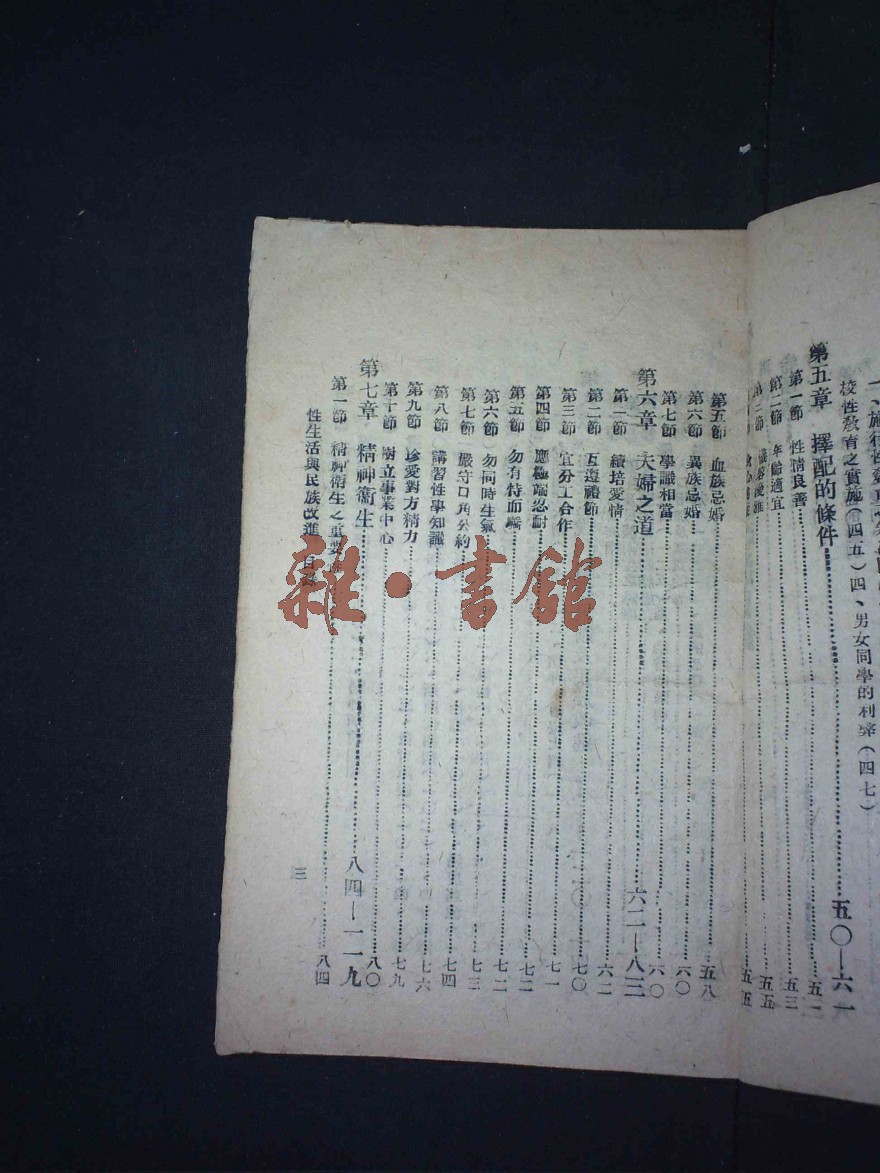 校性教育之實施(四五)四、男女同學的利弊(四七)
第五章 擇配的條件 五〇—六一
第一節 性情良善 五二
第二節 年齡適宜 五三
第三節 五五
五五
第五節 血族忌婚 五八
第六節 異族忌婚 六〇
第七節 學識相當 六〇
第六章 夫婦之道 六二—八三
第一節 續培愛情 六二
第二節 互遵禮節 七〇
第三節 宜分工合作 七一
第四節 應極端忍耐 七二
第五節 勿有特而驕 七二
第六節 勿同時生氣 七三
第七節 嚴守口角公約 七四
第八節 講習性學知識 七六
第九節 珍愛對方精力 七九
第十節 樹立事業中心 八〇
第七章 精神衛生 八四—一一九
第一節 精神衛生之重要 八四
性生活與民族改進 目 三
雜·書館